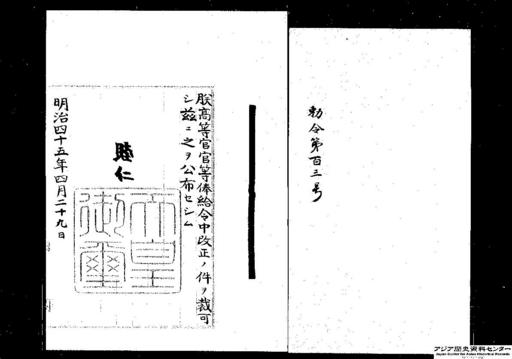 勅令第百三号
朕高等官官等俸給令中改正ノ件ヲ裁可
シ茲ニ之ヲ公布セシム
睦仁
天皇
御璽
明治四十五年四月二十九日
アジア歴史資料センター
Japan Center for Asian Historical Records